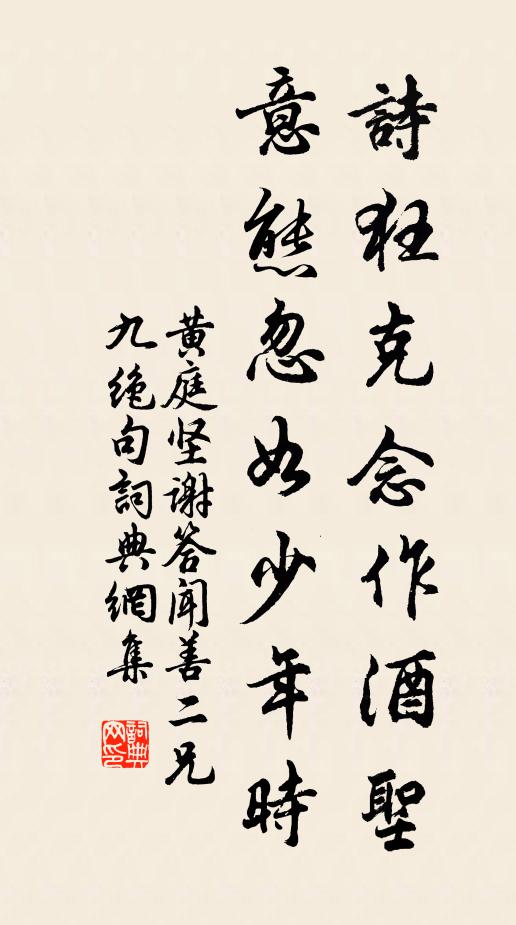 詩狂克念作酒聖
意態忽如少年時
黄庭坚谢答闻善二兄
九绝句詞典網集
詞典網印